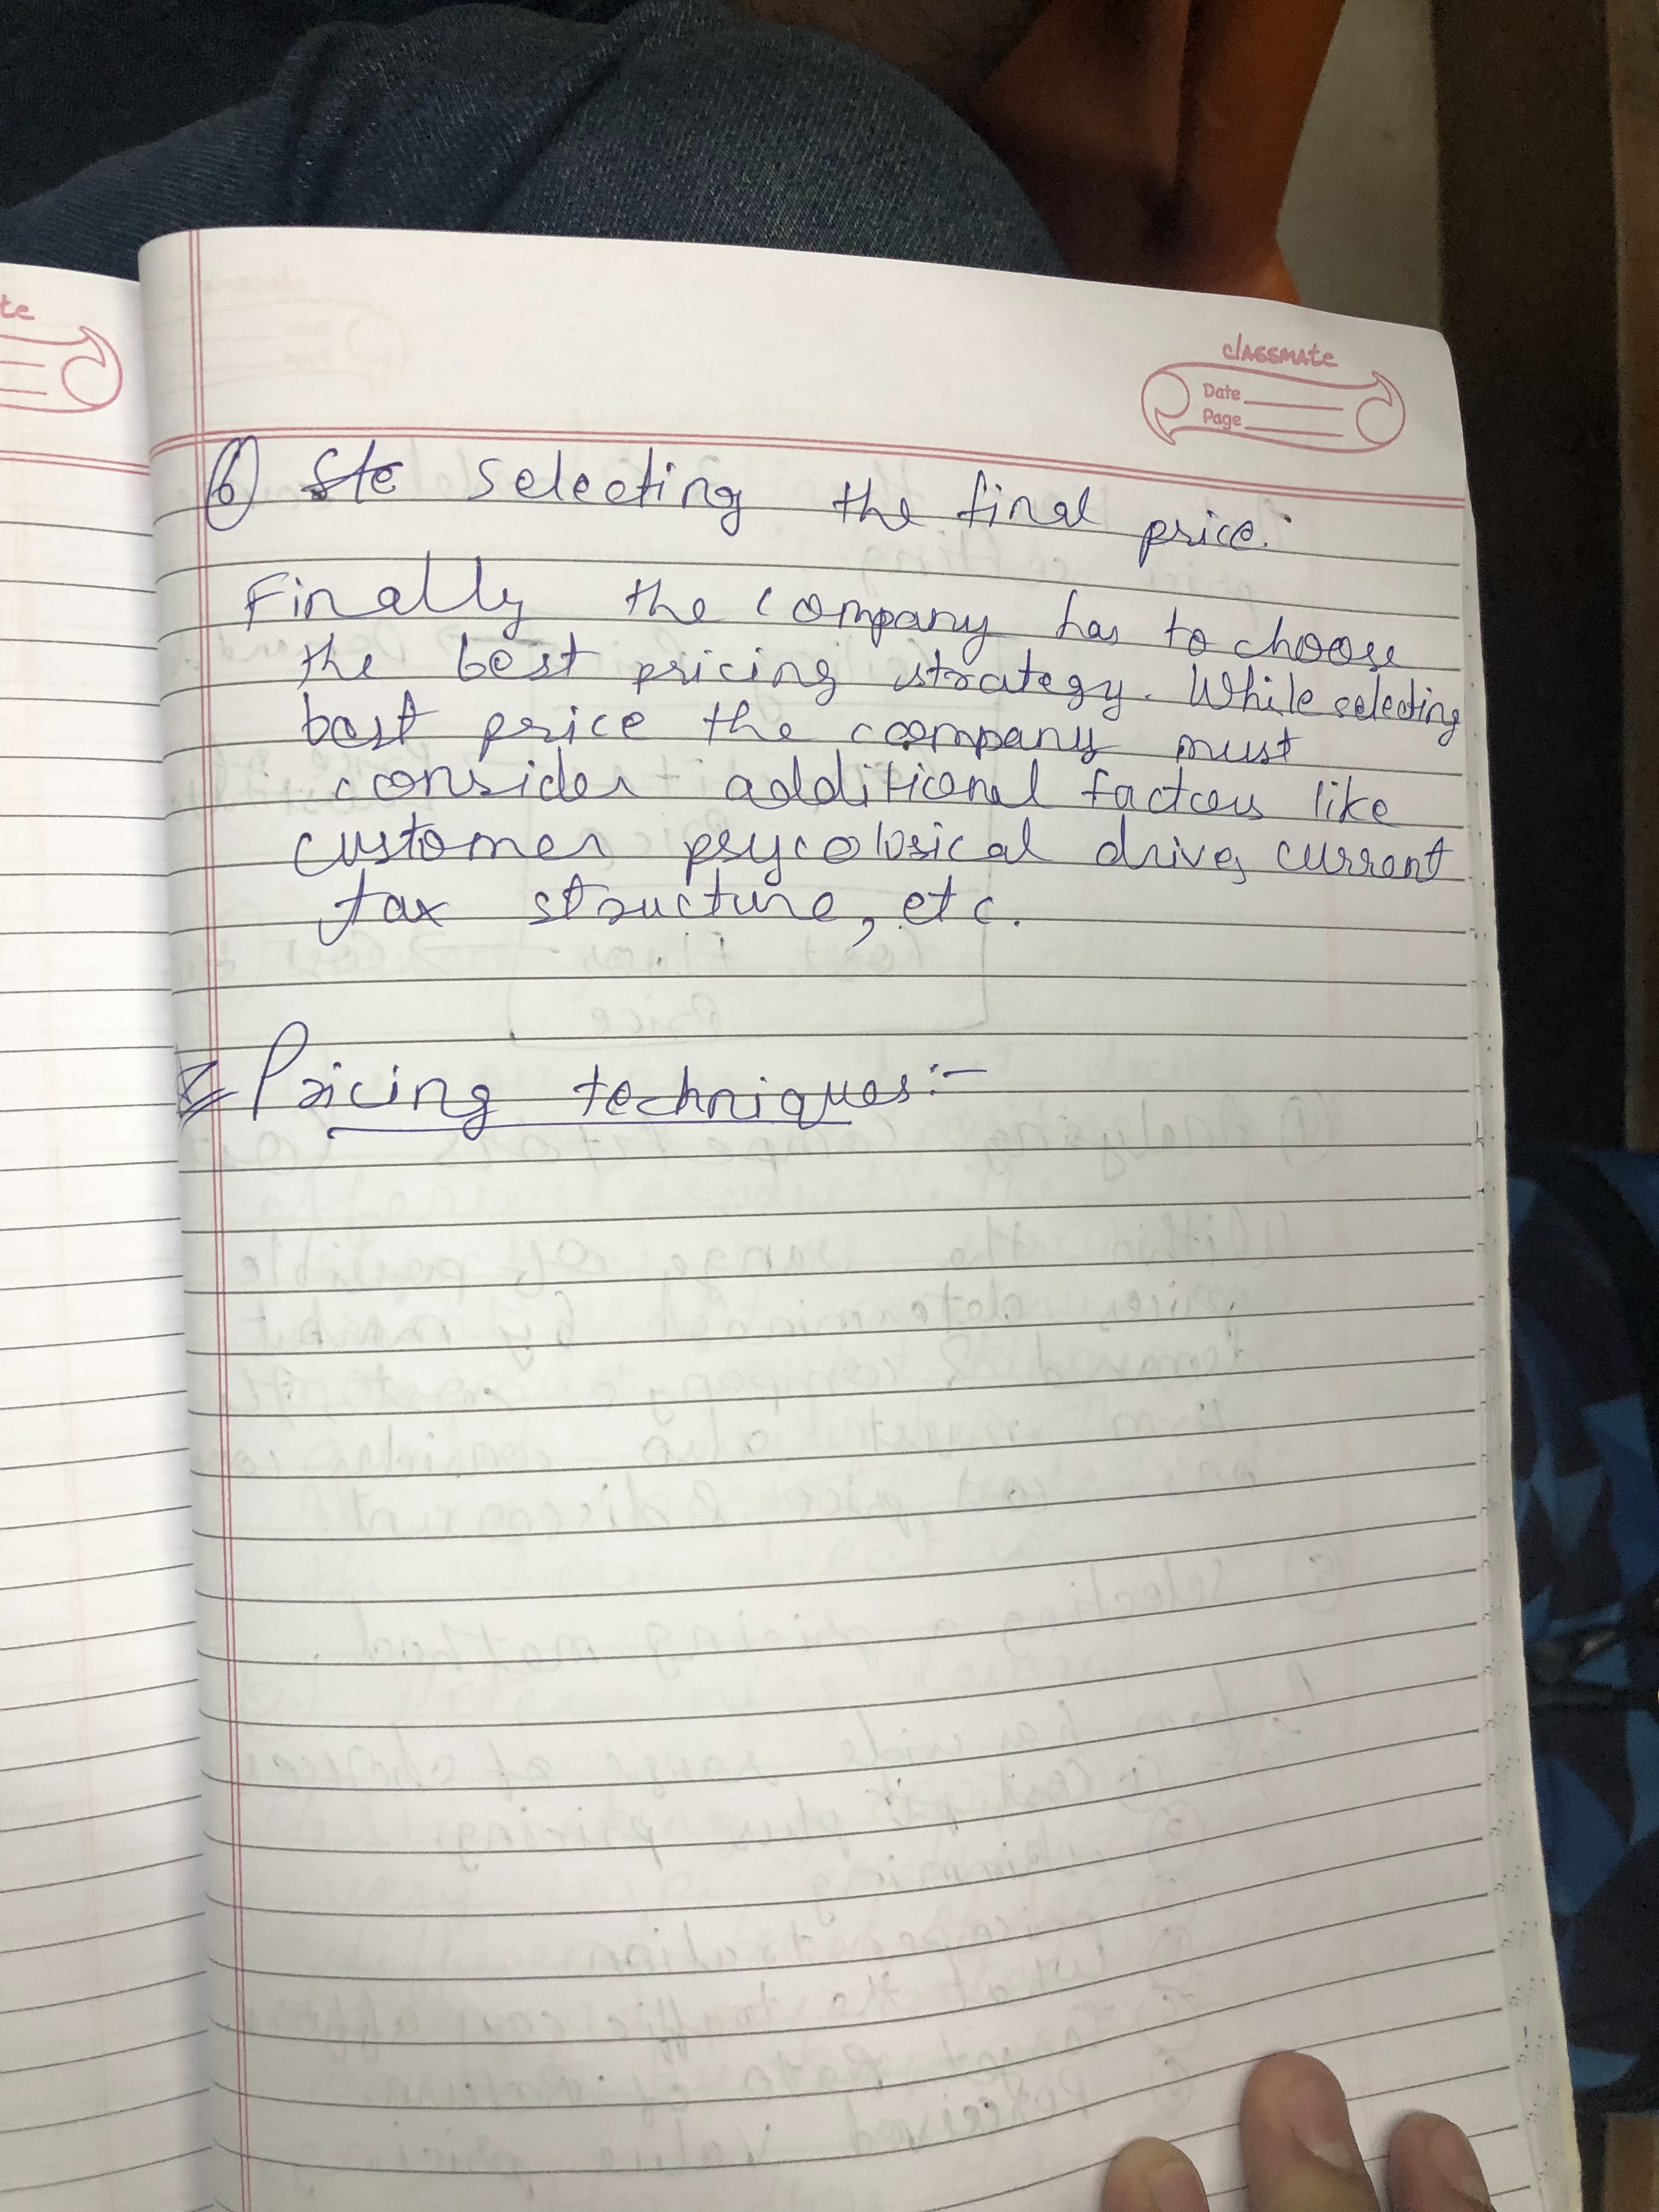 te
classmate
Date
Page
6) Ste selecting the final price:
Finally the company has to choose
the best pricing strategy. While selecting
best price the company must
consider additional factors like
customer psycological drive, current
tax structure, etc.
Pricing techniques:-